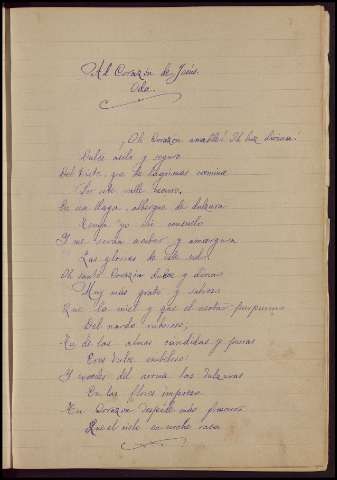 Al Corazón de Jesús.
Oda.
¡Oh Corazón amable! Oh luz divina!
Dulce asilo y seguro
Del triste que de lágrimas camina
Por este valle oscuro.
En su llaga, albergue de dulzura
Tenga yo mi consuelo
Y me serán acíbar y amargura
Las glorias de este suelo
Oh santo Corazón dulce y divino
Muy más grato y sabroso
Que la miel y que el néctar purpurino
Del nardo
Tu de las almas cándidas y puras
Eres dulce embeleso:
Y del aroma las dulzuras
En las flores impreso
Tu Corazón despide más frescura
Que el cielo en noche